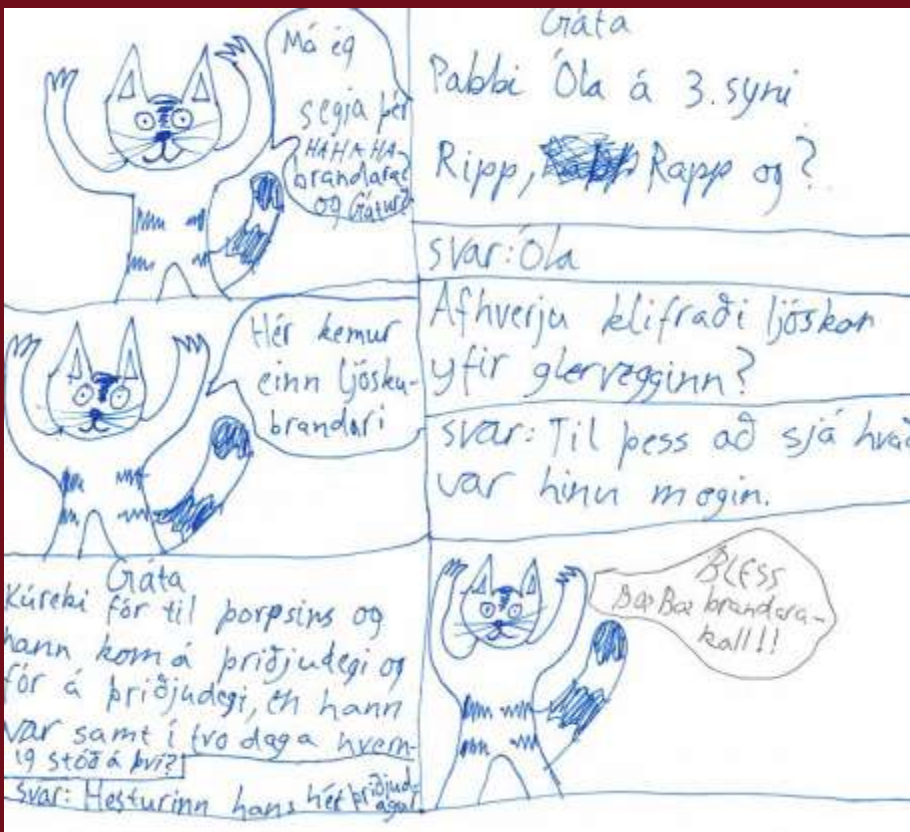 Má ég
segja þér
HAHAHA-
brandara
og Gátur?
Gáta
Pabbi Óla á 3. syni
Ripp, Rapp og?
svar: Óla
Hér kemur
einn ljósku-
brandari
Afhverju klifraði ljóskan
yfir glervegginn?
svar: Til þess að sjá hvað
var hinu megin.
Gáta
Kúreki fór til þorpsins og
hann kom á þriðjudegi og
fór á þriðjudegi, en hann
var samt í tvo daga hvern-
ig stóð á því?
svar: Hesturinn hans hét þriðjud-
agur
BLESS
Bæ Bæ brandara-
kall!!